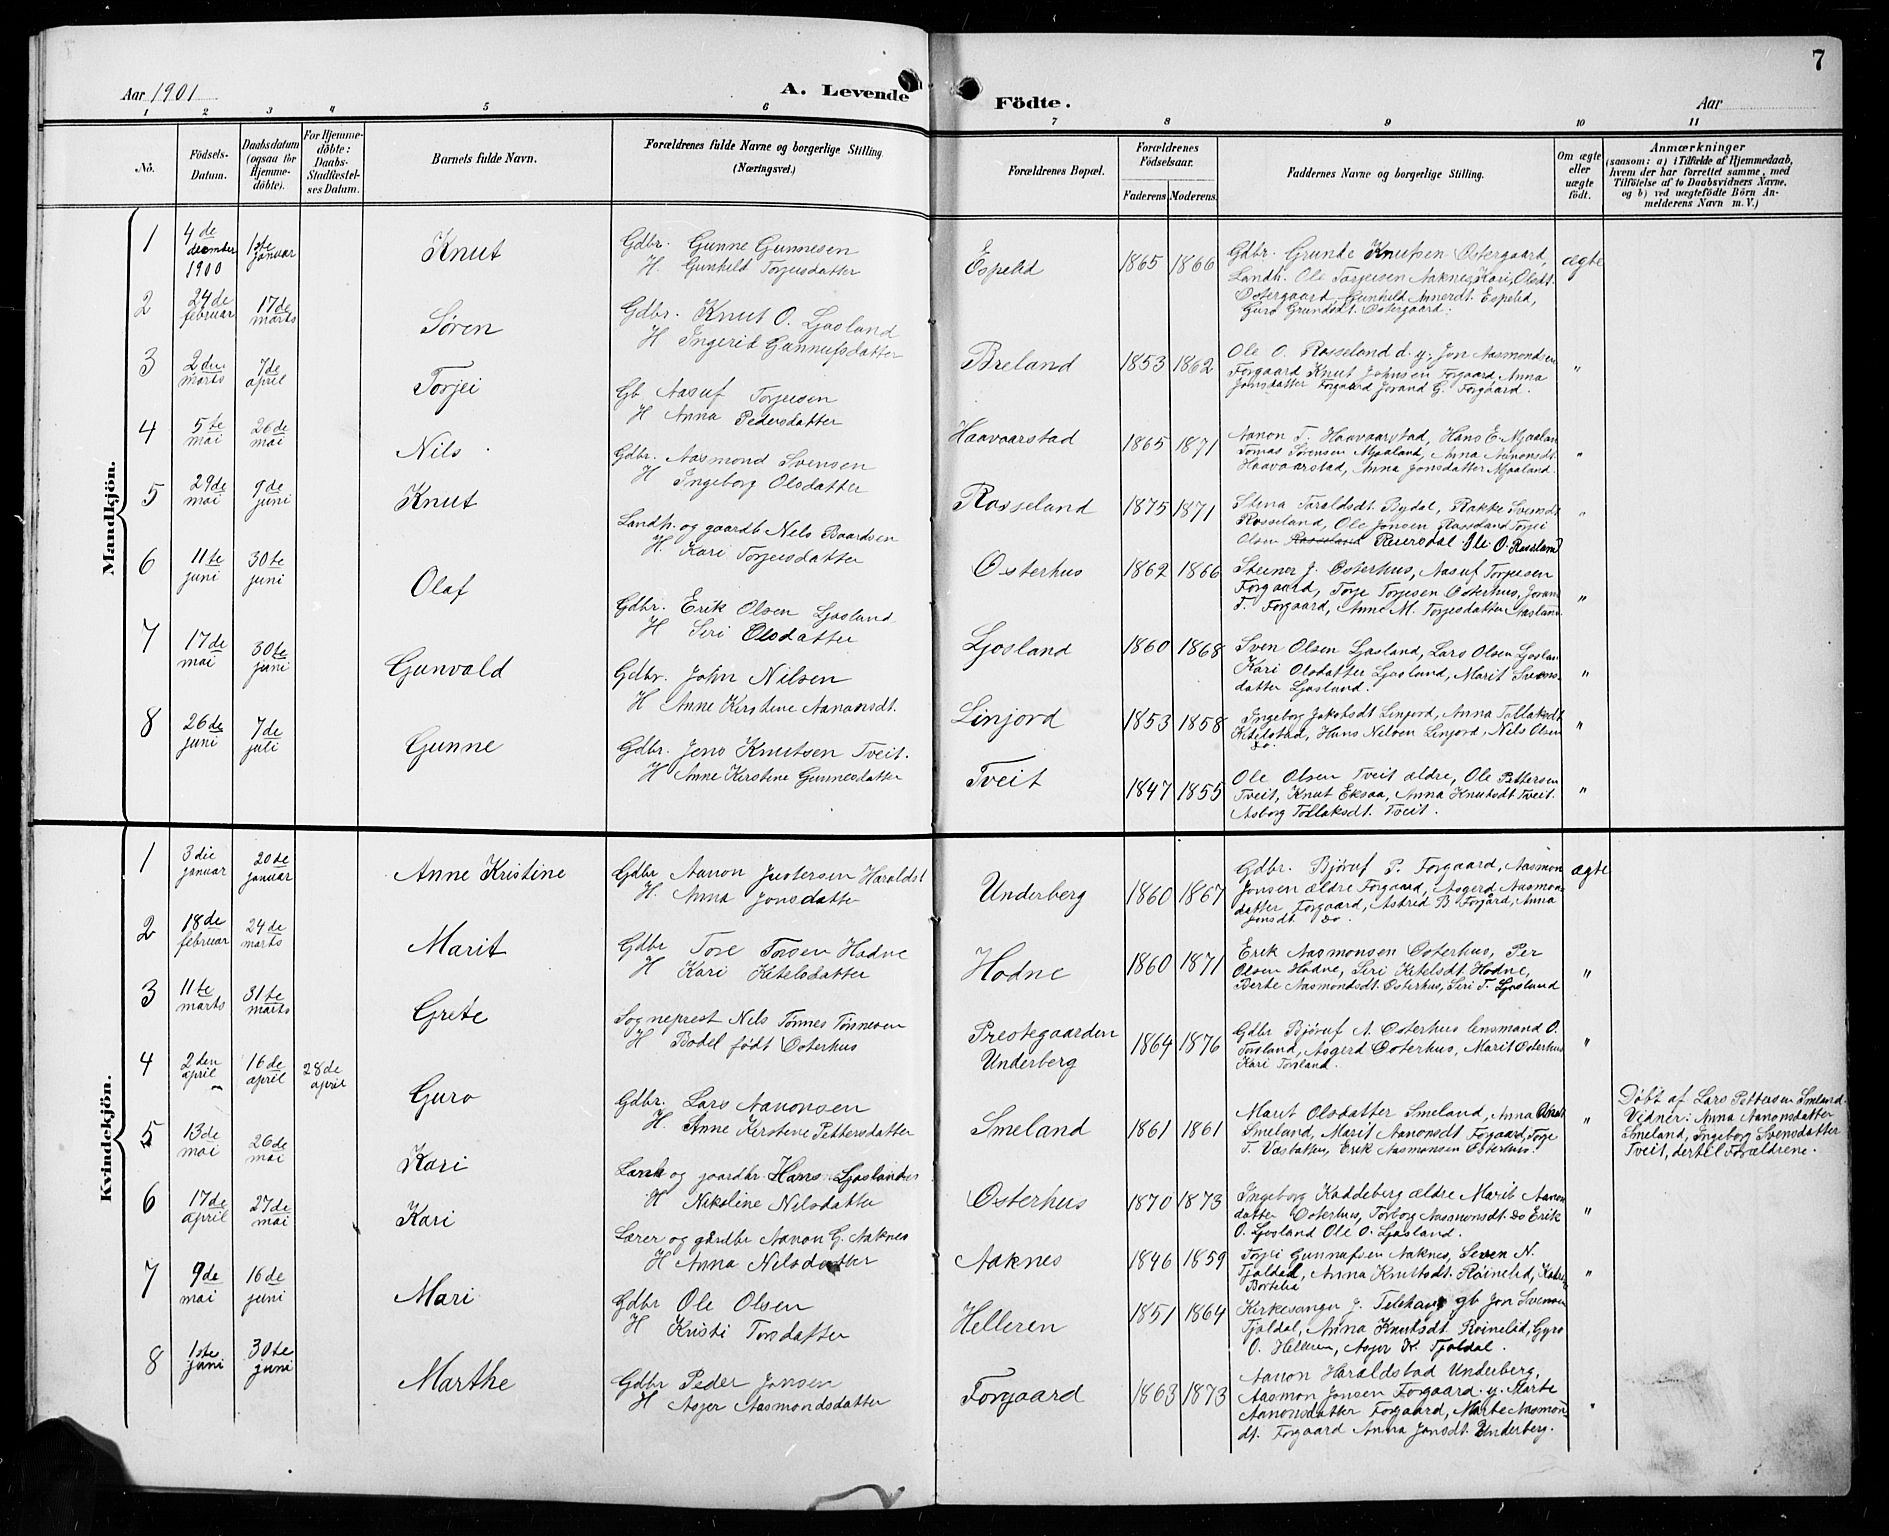 7
Aar 1901
A. Levende Födte.
Aar
1 2 3 4 5 6 7 8 9 10 11
No.
Födsels-Datum.
Daabsdatum (ogsaa for Hjemmedöbte).
For Hjemmedöbte: Daabs-Stadfæstelses Datum.
Barnets fulde Navn.
Forældrenes fulde Navne og borgerlige Stilling (Næringsvei.)
Forældrenes Bopæl.
Forældrenes Födselsaar.
Faderens Moderens.
Faddernes Navne og borgerlige Stilling.
Om ægte eller uægte födt.
Anmærkninger
(saasom: a) i Tilfælde af Hjemmedaab, hvem der har forrettet samme, med Tilföielse af to Daabsvidners Navne, og b) ved uægtefödte Börn Anmelderens Navn m. V.)
Mandkjön.
1 4de december 1900 1ste januar Knut
Gdbr. Gunne Gunnesen
H. Gunhild Torjusdatter
Espelid 1865 1866
Gdbr. Grunde Knutsen Østergaard,
Landh. Ole Torjeisen Aaknes, Kari Olsdt.
Østergaard Gunhild Annerdt. Espelid,
Guro Grundsdt. Østergaard.
ægte
2 24de februar 17de marts Søren
Gdbr. Knut O. Ljosland
H Ingerid Gunnufsdatter
Breland 1853 1862
Ole O. Rosseland d. y., Jon Aasmondsen
Forgaard Knut Johnsen Forgaard Anna
Jonsdatter Forgaard Jorand G. Forgaard.
"
3 2den marts 7de april Torjei
Gb Aasuf Torjusen
H Anna Pedersdatter
Haavaarstad 1865 1871
Aanon T. Haavaarstad, Hans E. Mjaalan
Tomas Sørensen Mjaaland, Anna Aanonsdt.
Haavaarstad, Anna Jonsdatter Mjaaland.
"
4 5te mai 26de mai Nils
Gdbr. Aasmond Svensen
H Ingeborg Olsdatter
Rosseland 1875 1871
Stena Taraldsdt. Bydal, Rakke Svensdt
Rosseland, Ole Jonsen Rosseland Torjei
Olsen Rosseland Reiersdal Ole O. Rosseland
"
5 29de mai 9de juni Knut
Landh. og gaardbr Nils Baardsen
H. Kari Torjusdatter
Osterhus 1862 1866
Steiner J. Østerhus, Aasuf Torjusen
Forgaard, Torje Torjesen Østerhus, Joran
T. Forgaard, Anne M. Torjesdatter Aasland
"
6 11te juni 30te juni Olaf
Gdbr. Erik Olsen Ljosland
H Siri Olsdatter
Ljosland 1860 1868
Sven Olsen Ljosland, Lars Olsen Ljoslan
Kari Olsdatter Ljosland, Marit Svens-
datter Ljosland.
"
7 17de mai 30te juni Gunvald
Gdbr. John Nilsen
H Anne Kirstine Aanonsdt.
Linjord 1853 1858
Ingeborg Jakobsdt Linjord, Anna Tollaksdt
Ketelstad, Hans Nilsen Linjord, Nils Olsen
do.
"
8 26de juni 7de juli Gunne
Gdbr. Jens Knutsen Tveit.
H Anne Kirstine Gunnesdatter
Tveit 1847 1855
Ole Olsen Tveit ældre, Ole Pettersen
Tveit, Knut Eksaa, Anna Knutsdt. Tveit.
Asborg Tollaksdt. Tveit.
"
Kvindekjön.
1 3die januar 20de januar Anne Kristine
Gdbr Aanon Justersen Haraldst
H. Anna Jonsdatter
Underberg 1860 1867
Gdbr. Bjøruf P. Forgaard, Aasmon
Jonsen ældre Forgaard, Asgerd Aasmons
datter Forgaard, Astrid B Forjard, Anna
Jonsdt do.
ægte
2 18de februar 24de marts Marit
Gdbr Tore Torsen Hodne
H Kari Ketelsdatter
Hodne 1860 1871
Erik Aasmonsen Østerhus, Per
Olsen Hodne, Siri Ketelsdt. Hodne,
Berte Aasmondsdt. Østerhus, Siri T. Ljosland
"
3 11te marts 31te marts Grete
Sogneprest Nils Tønnes Tønnesen
H Bodel født Østerhus
Prestegaarden Underberg 1864 1876
Gdbr Bjøruf A. Østerhus lensmand O.
Torsland, Asgerd Østerhus, Marit Østerhus
Kari Torsland.
"
4 2den april 16de april 28de april Guro
Gdbr. Lars Aanonsen
H. Anne Kirstine Pettersdatter
Smeland 1861 1861
Marit Olsdatter Smeland, Anna
Smeland, Marit Aanonsdt Forgaard, Torje
T. Væsbottn, Erik Aasmonsen Østerhus.
"
Døbt af Lars Pettersen Smeland.
Vidner: Anna Aanonsdatter
Smeland, Ingeborg Svensdatter
Tveit, dertil Forældrene.
5 13de mai 26de mai Kari
Landh og gaardbr Hans Ljoslandes
H Nikoline Nilsdatter
Osterhus 1870 1873
Ingeborg Kaddeberg ældre Marit Aanon
datter Østerhus, Torborg Aasmonsdt. do Erik
O. Ljosland Ole O. Ljosland.
"
6 17de april 27de mai Kari
Lærer og gårdbr Aanon G. Aaknes
H Anna Nilsdatter
Aaknes 1846 1859
Torjei Gunnufsen Aaknes, Seven N.
Tjaldal, Anna Knutsdt. Røinelid,
Bortelid
"
7 9de mai 16de juni Mari
Gdbr Ole Olsen
H Kristi Torsdatter
Helleren 1851 1864
Kirkesanger J. Telehaug gb Jon Svensen
Tjaldal, Anna Knutsdt Røinelid, Gyro
O. Helleren, Asger K. Tjaldal.
8 1ste juni 30te juni Marthe
Gdbr Peder Jonsen
H Asjer Aasmondsdatter
Forgaard 1863 1873
Aanon Haraldstad Underberg,
Aasmon Jonsen Forgaard. y. Marte
Aanonsdatter Forgaard, Marte Aasmon
dt. Forgaard Anna Jonsdt. Underberg.
"